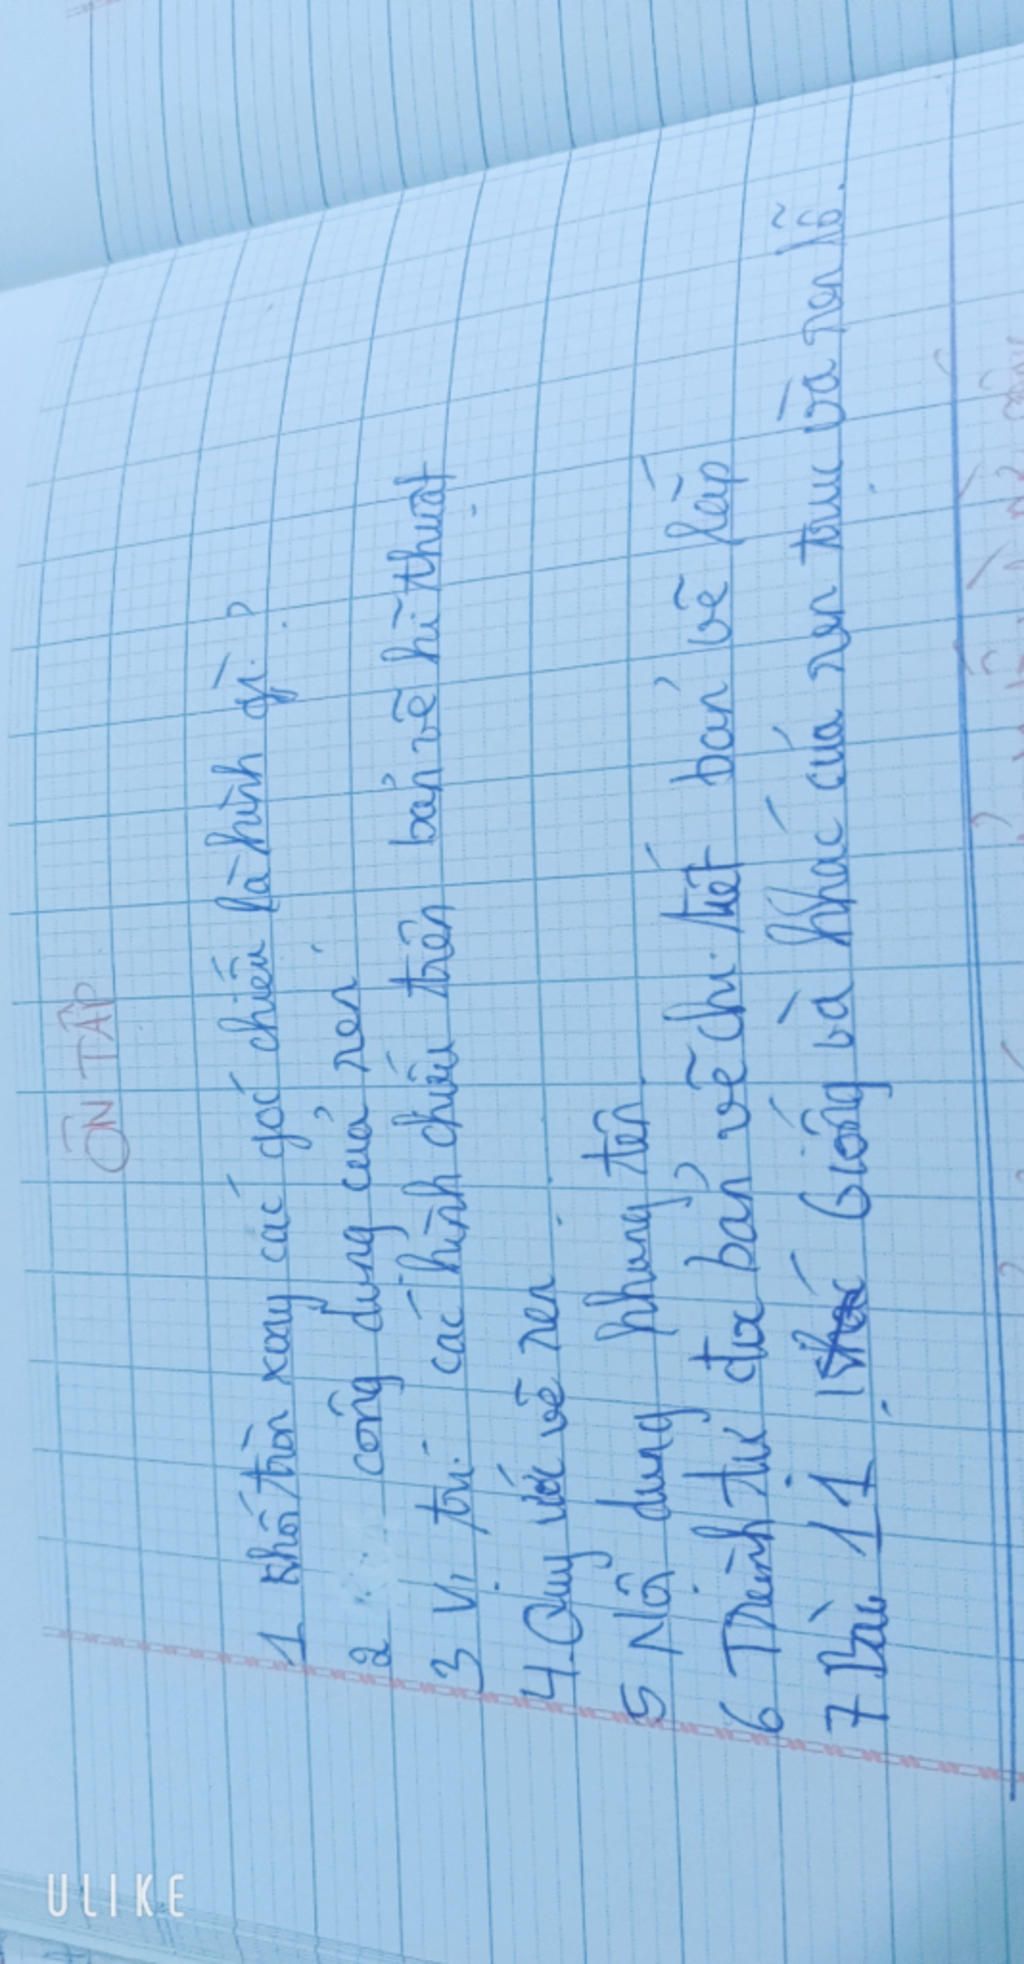 ÔN TẬP
1 Khối tròn xoay các góc chiếu là hình gì?
2 công dụng của ren
3 Vị trí các hình chiếu trên bản vẽ kĩ thuật
4. Quy ước vẽ ren
5 Nội dung khung tên
6 Trình tự đọc bản vẽ chi tiết bản vẽ lắp
7 Bài 11 Giống và khác của ren trục và ren lỗ.
ULIKE